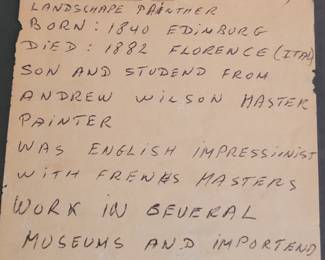 LANDSHAPE PAINTHER
BORN: 1840 EDINBURG
DIED: 1882 FLORENCE (ITAL)
SON AND STUDEND FROM
ANDREW WILSON MASTER
PAINTER
WAS ENGLISH IMPRESSIONIST
WITH FRENHS MASTERS
WORK IN SEVERAL
MUSEUMS AND IMPORTEND